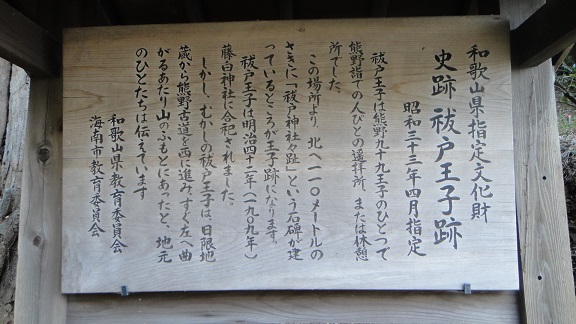 和歌山県指定文化財
史跡 祓戸王子跡
昭和三十三年四月指定
祓戸王子は熊野九十九王子のひとつで
熊野詣での人びとの遥拝所、または休憩
所でした。
この場所より、北へ一一〇メートルの
さきに「祓戸神社々趾」という石碑が建
っているところが王子跡になります。
祓戸王子は明治四十二年（一九〇九年）
藤白神社に合祀されました。
しかし、むかしの祓戸王子は、日限地
蔵から熊野古道を西へ進み、すぐ左へ曲
がるあたり山のふもとにあったと、地元
のひとたちは伝えています
和歌山県教育委員会
海南市教育委員会